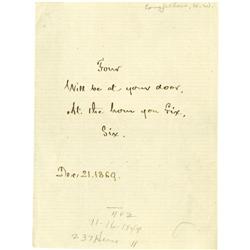 Longfellow, H. W.
Four
Will be at your door,
At the hour you fix,
Six.
Dec. 21. 1869.
11-16-1944